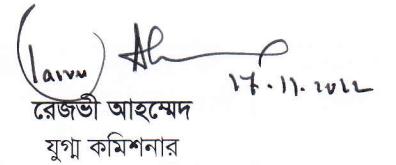 17.11.2022
রেজভী আহম্মেদ
যুগ্ম কমিশনার